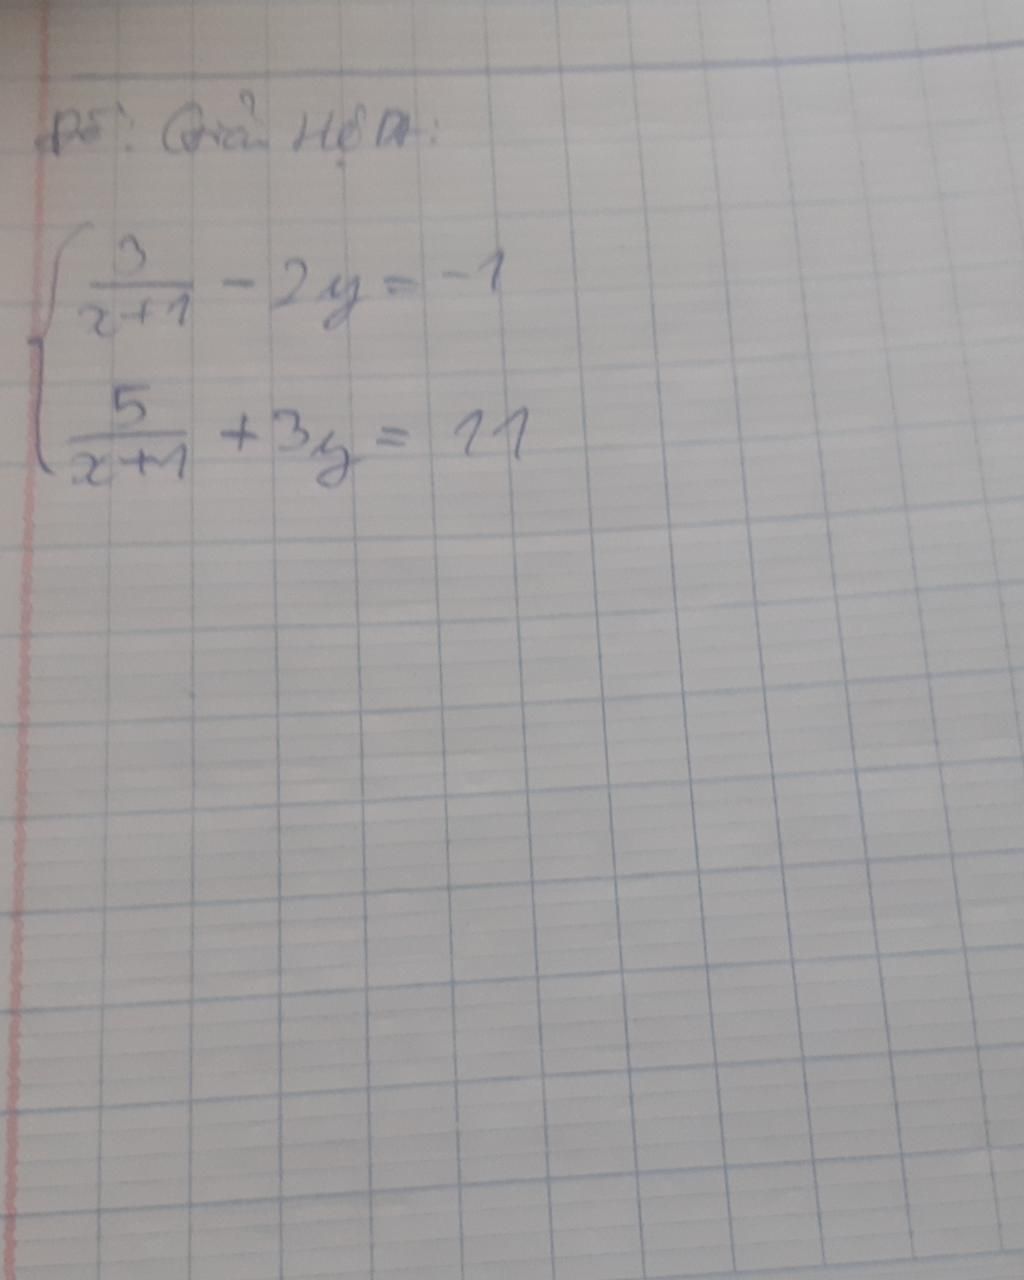 Đề: Giải Hệ Pt:
3/(x+1) - 2y = -1
5/(x+1) + 3y = 11